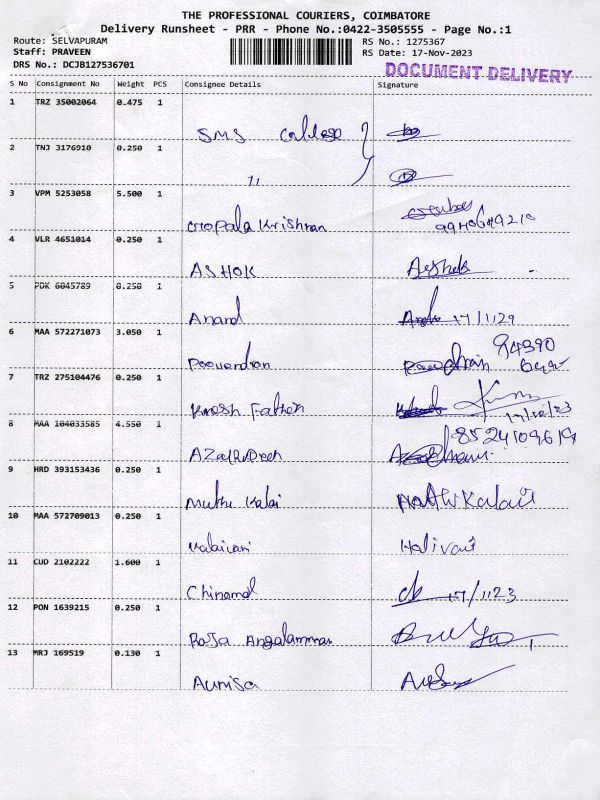 THE PROFESSIONAL COURIERS, COIMBATORE
Delivery Runsheet - PRR - Phone No.:0422-3505555 - Page No.:1
Route: SELVAPURAM RS No.: 1275367
Staff: PRAVEEN RS Date: 17-Nov-2023
DRS No.: DCJB127536701 DOCUMENT DELIVERY
S No Consignment No Weight PCS Consignee Details Signature
1 TRZ 35002064 0.475 1
SMS College
2 TNJ 3176910 0.250 1
11
3 VPM 5253058 5.500 1
Gopala Krishnan
4 VLR 4651014 0.250 1
ASHOK Ashok
5 PDK 6045789 0.250 1
Anand 17/1123
6 MAA 572271073 3.050 1
Poovendran 94390
7 TRZ 275104476 0.250 1
Father 17/10/23
8 MAA 104033585 4.550 1
8524109619
9 HRD 393153436 0.250 1
Muthu Kalai
10 MAA 572709013 0.250 1
11 CUD 2102222 1.600 1
17/1123
12 PON 1639215 0.250 1
Raja Angalamman
13 MRJ 169519 0.130 1